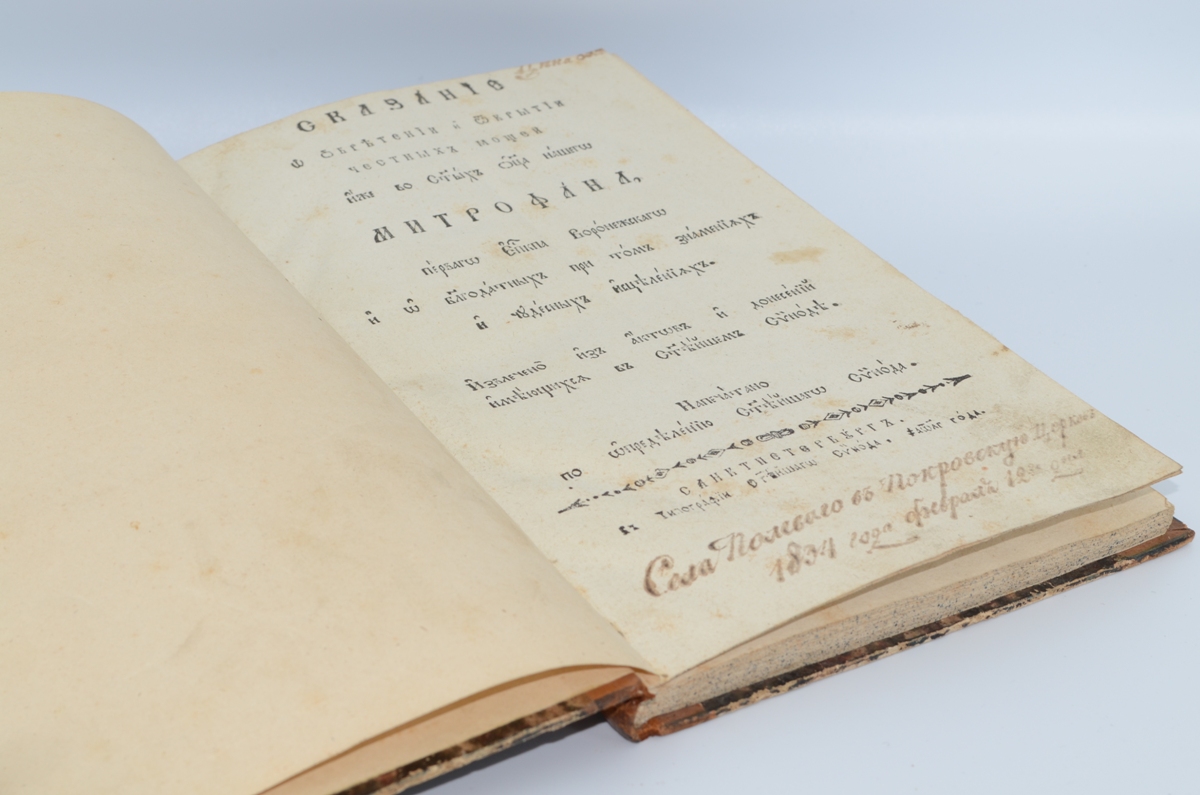 СКАЗА́НІЕ
Ѡ Ѡбрѣтенїи и҆ Ѿкрытїи
честныхъ мощей
и҆́же во Ст҃ы́хъ Ѻ҆ц҃а̀ на́шегѡ
МИТРОФА́НА,
пе́рвагѡ Е҆пⷭ҇кпа Воро́нежскагѡ
и҆ ѡ҆ бл҃года́тныхъ при то́мъ зна́менїѧхъ
и҆ чꙋде́сныхъ и҆сцѣле́нїѧхъ.
И҆звлечено̀ и҆зъ а҆́ктѡвъ и҆ донесе́нїй
и҆мѣ́ющихсѧ въ Ст҃ѣ́йшемъ Сѷно́дѣ.
Напеча́тано
по ѡ҆предѣле́нїю Ст҃ѣ́йшагѡ Сѷно́да.
САНКТПЕТЕРБꙊРГЪ.
въ Тѷпогра́фїи Ст҃ѣ́йшагѡ Сѷно́да, го́да.
Села Полеваго въ Покровскую Церковь
1834 года февраля 12го дня